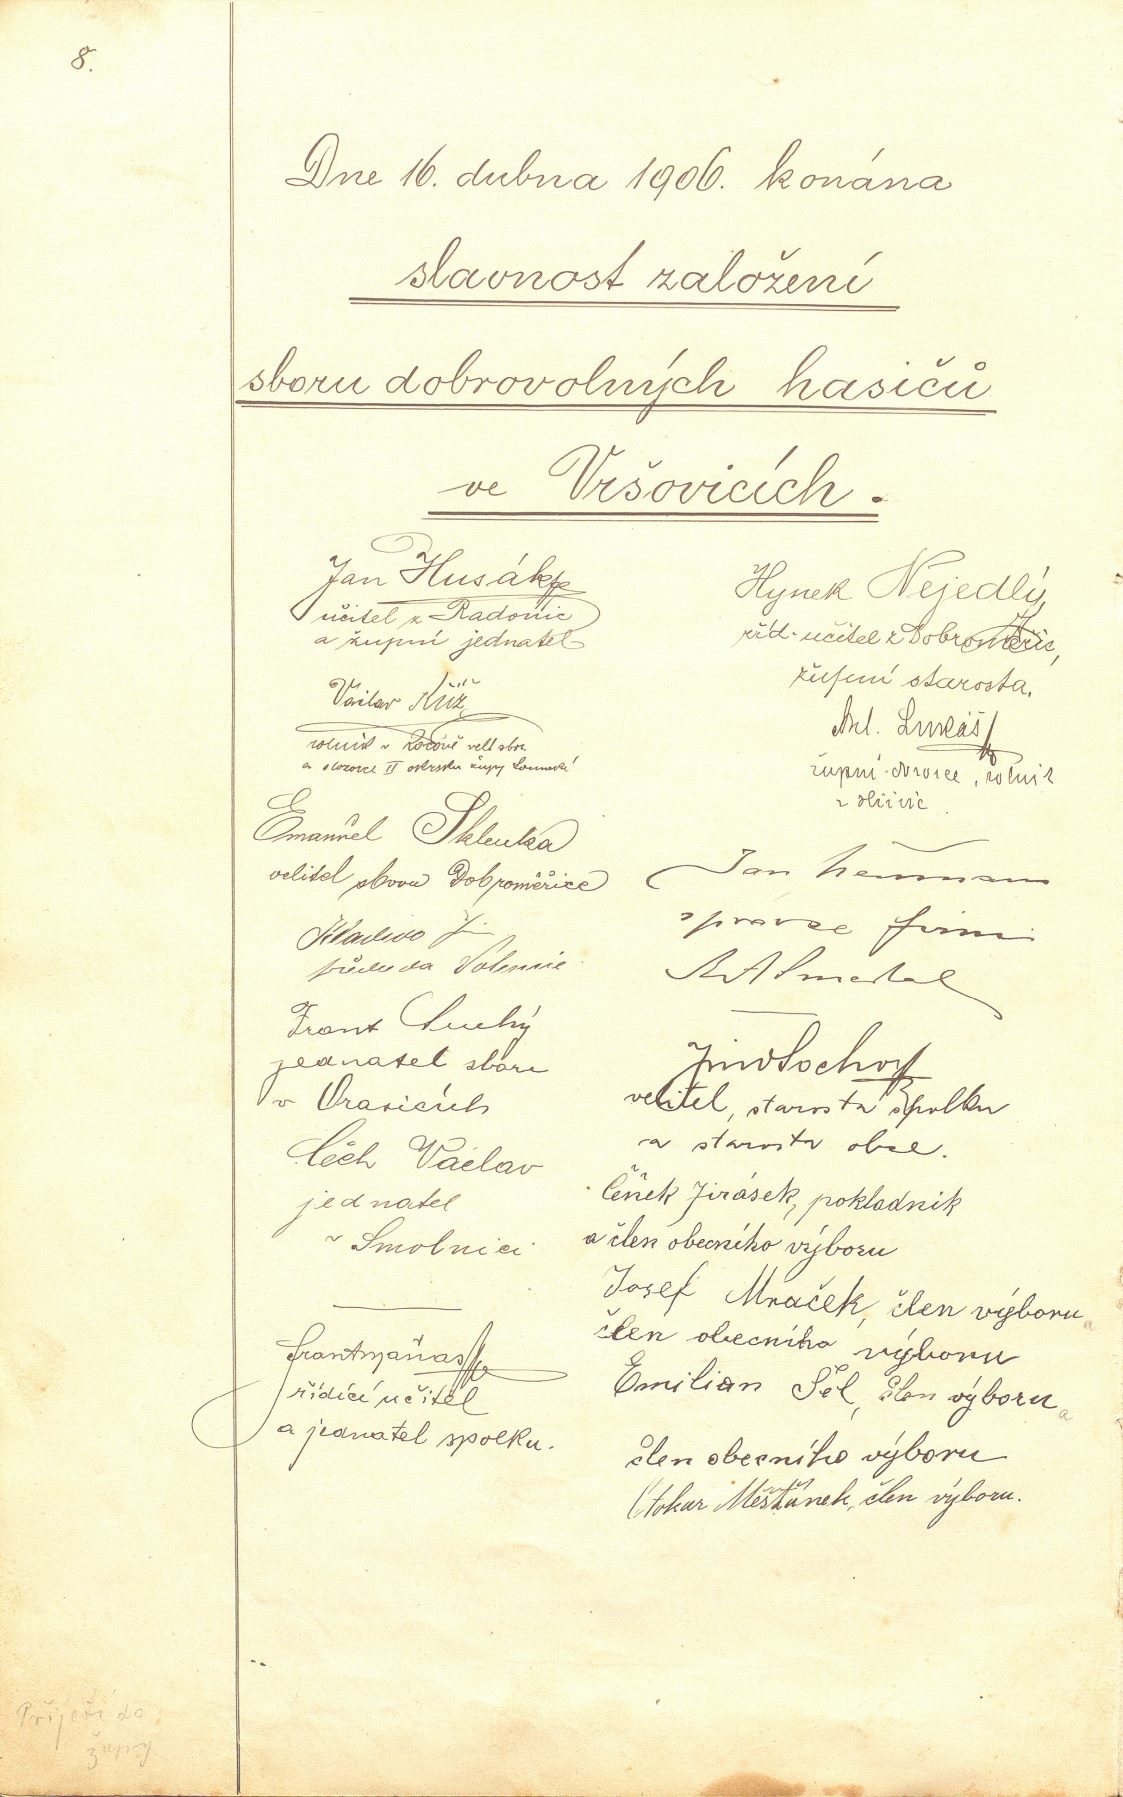 8.
Dne 16. dubna 1906. konána
slavnost založení
sboru dobrovolných hasičů
ve Vršovicích.
Jan Husák
učitel z Radonic
a župní jednatel
Václav Kůž
rolník v velit sboru
a dozorce II okrsku župy Lounské
Emanuel Sklenka
velitel sboru Dobroměřice
Kladivo J.
předseda Volenic
Frant Suchý
jednatel sboru
v Orasicích
Čéch Václav
jednatel
v Smolnici
Frant Maňas
řídící učitel
a jednatel spolku.
Hynek Nejedlý,
říd. učitel z Dobroměřic,
župní starosta.
Ant. Lukáš
župní dozorce, rolník
z
Jan
správce firmi
Jind Sochor
velitel, starosta spolku
a starosta obce.
Čeněk Jirásek, pokladník
a člen obecního výboru
Josef Mraček, člen výboru a
člen obecního výboru
Emilian Šél, člen výboru a
člen obecního výboru
Otokar Měšťánek, člen výboru.
Přijetí do
župy